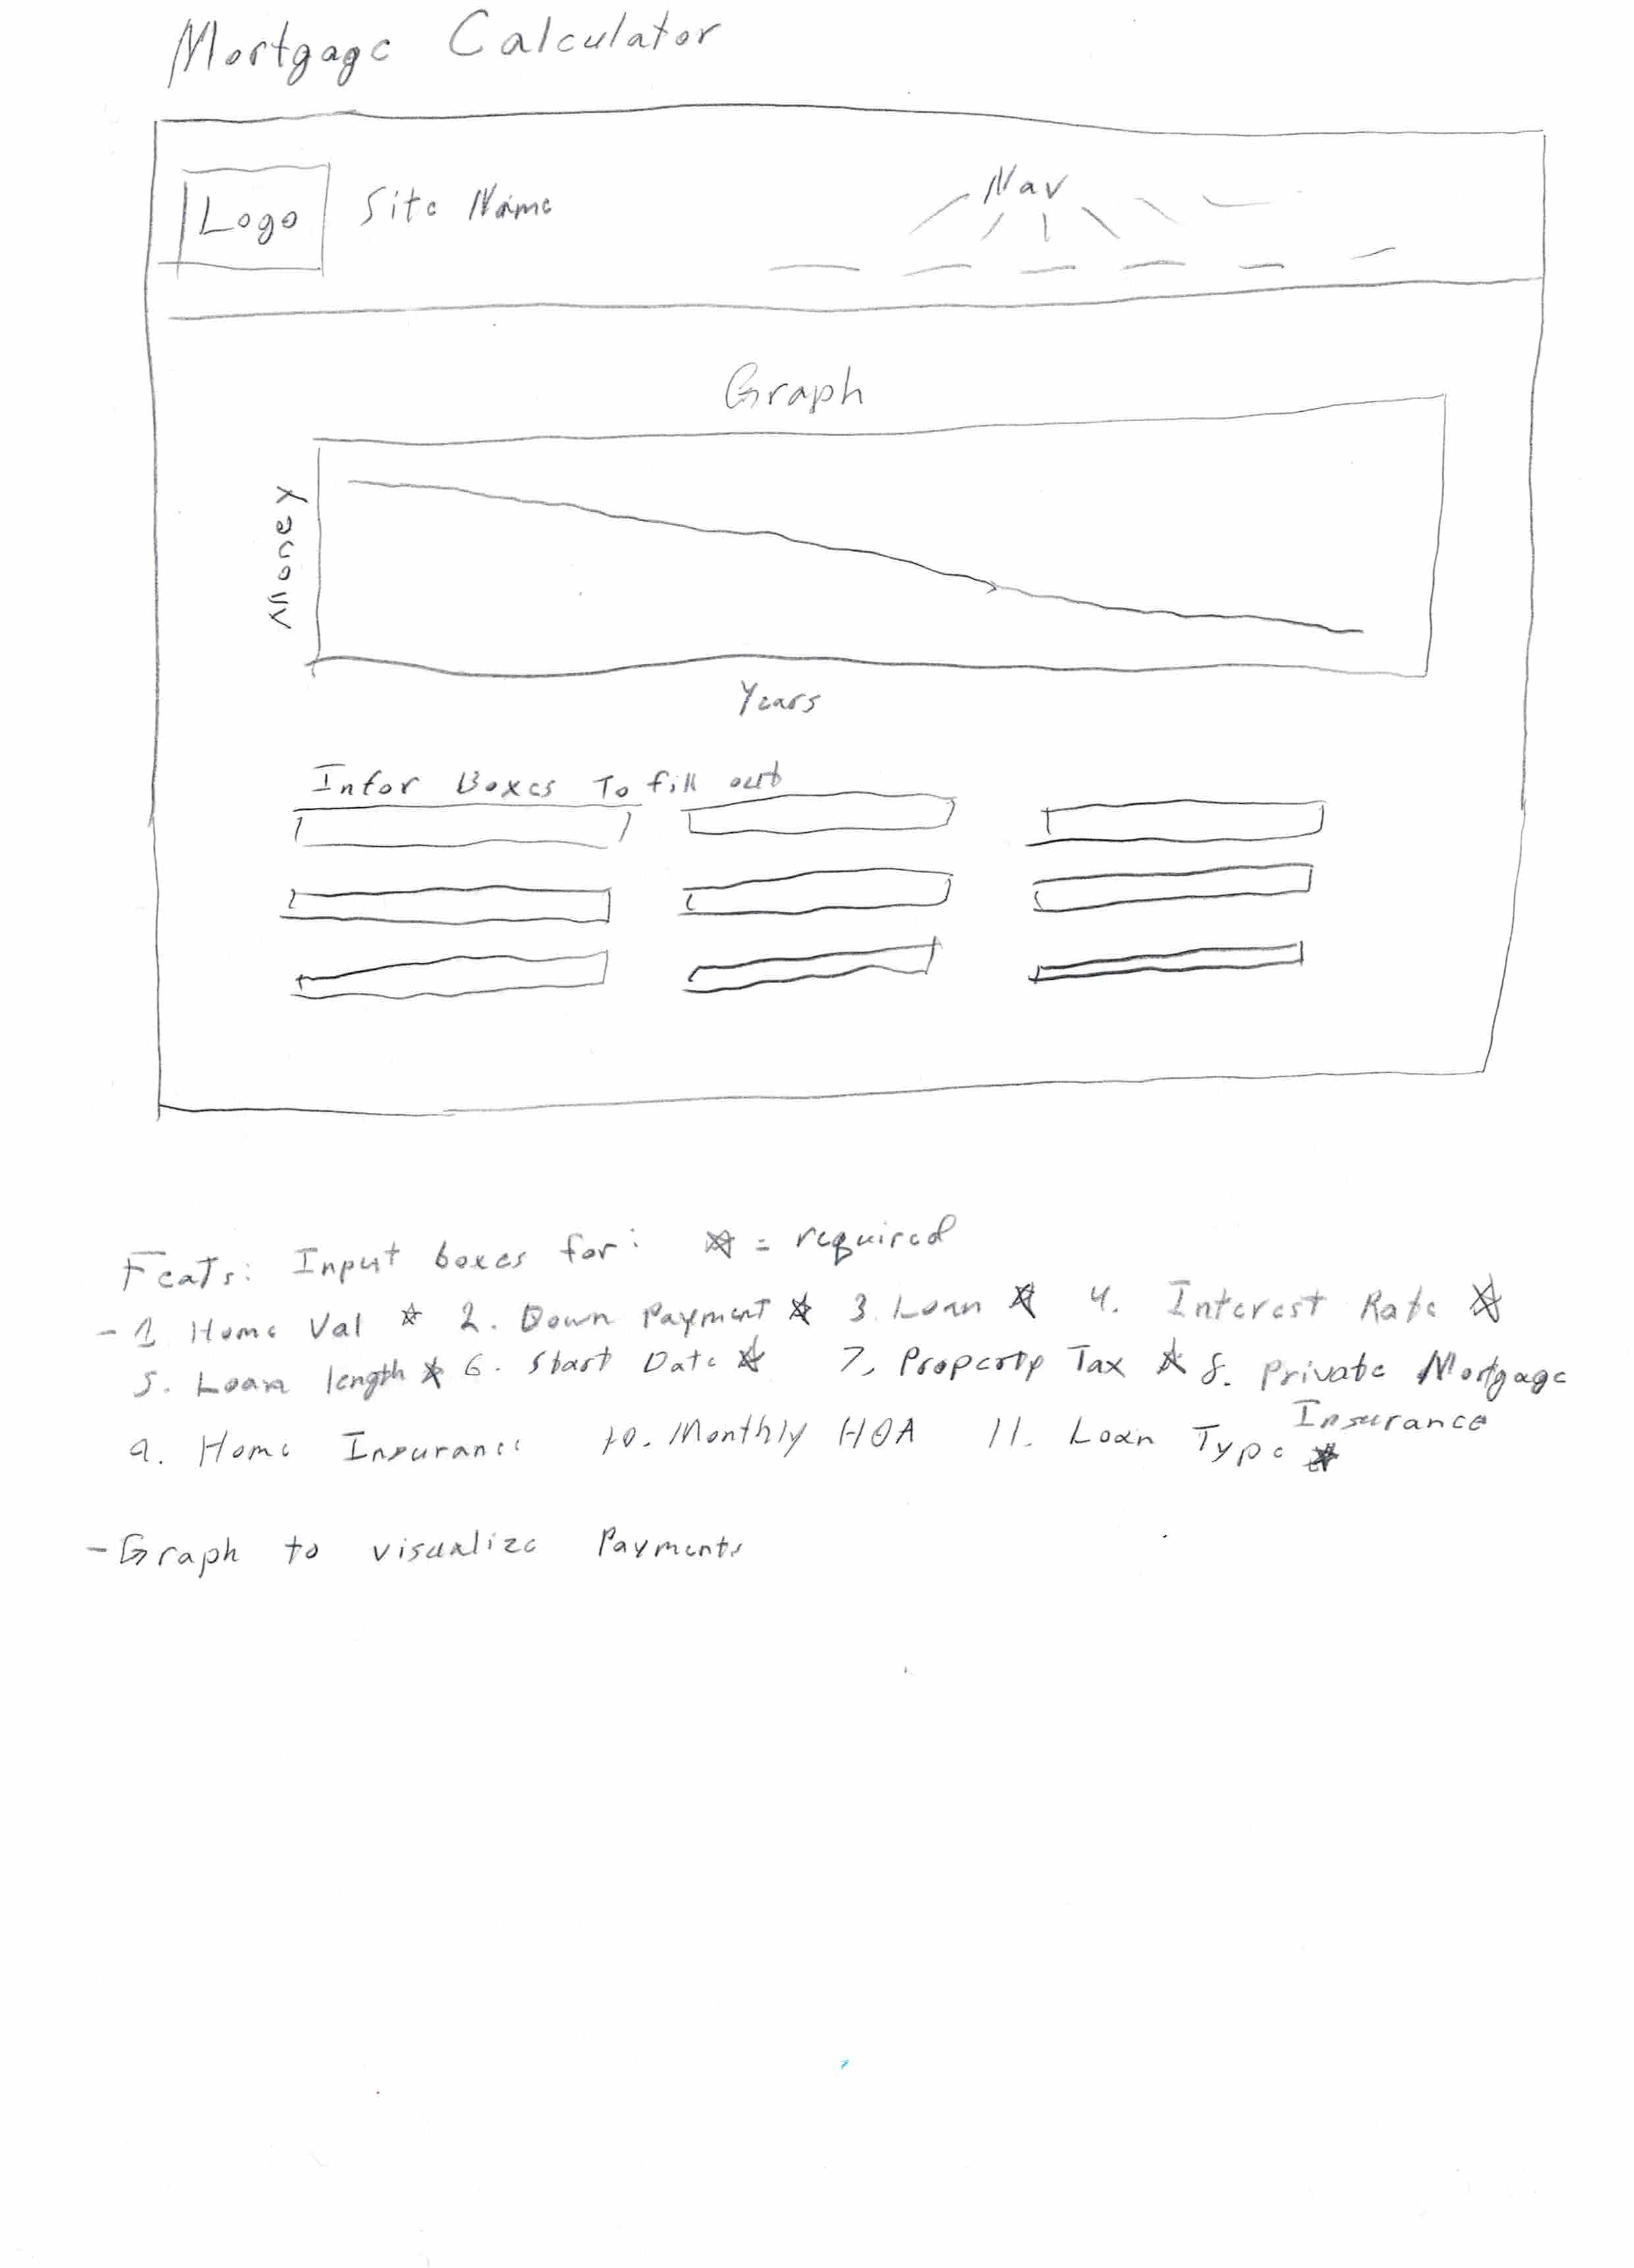 Mortgage Calculator
Logo
Site Name
Nav
Graph
Money
Years
Infor Boxes To fill out
Feats: Input boxes for: ☆ = required
- 1. Home Val ☆ 2. Down Payment ☆ 3. Loan ☆ 4. Interest Rate ☆
5. Loan length ☆ 6. Start Date ☆ 7. Property Tax ☆ 8. Private Mortgage
Insurance
9. Home Insurance 10. Monthly HOA 11. Loan Type ☆
- Graph to visualize Payments